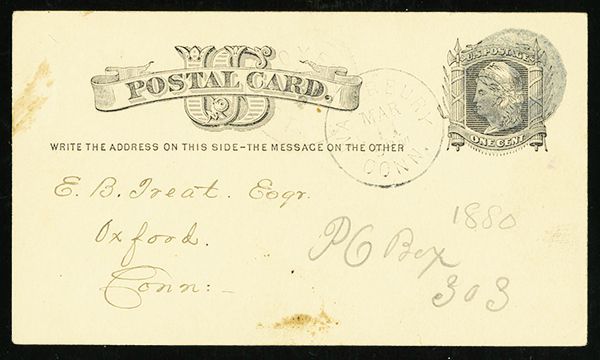 US
POSTAL CARD.
U.S. POSTAGE
ONE CENT
WATERBURY
MAR
CONN.
WRITE THE ADDRESS ON THIS SIDE-THE MESSAGE ON THE OTHER
E. B. Treat. Esqr.
Oxford.
Conn:-
1880
PO Box
303